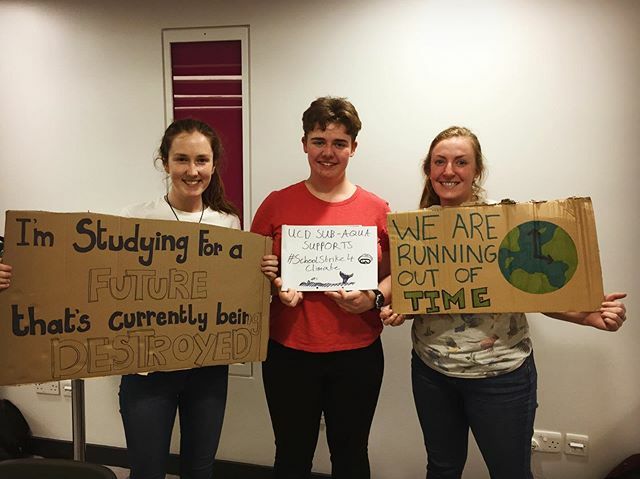 I'm Studying For a
FUTURE
that's currently being
DESTROYED
UCD SUB-AQUA
SUPPORTS
#SchoolStrike4
Climate
WE ARE
RUNNING
OUT OF
TIME